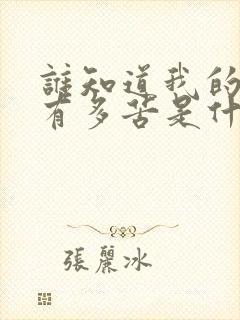 誰知道我的
有多苦是什
張麗冰